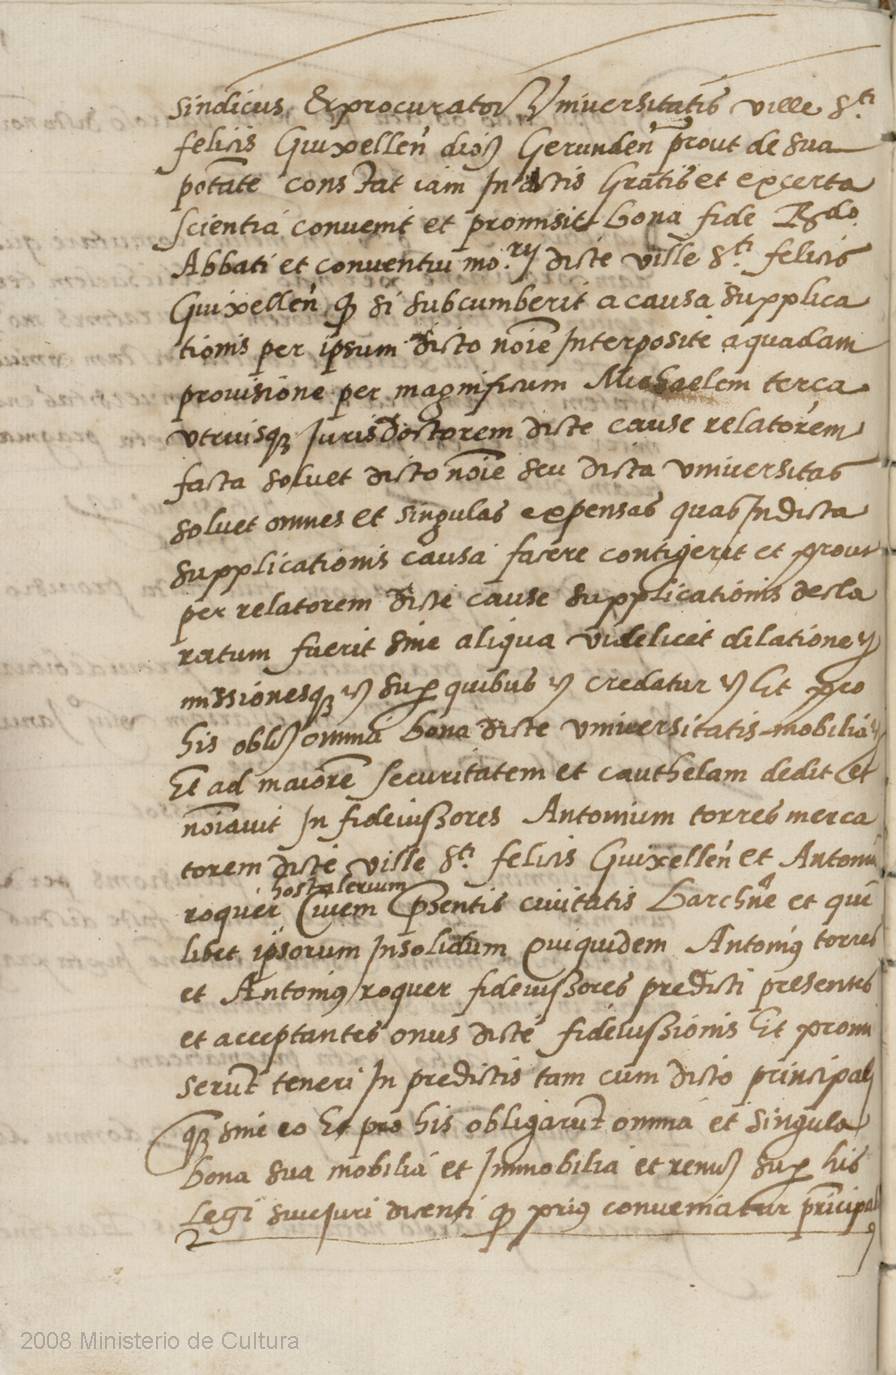 sindicus et procurator Universitatis ville S.ti
felicis Guixellen̄ dioȷ Gerunden̄ prout de sua
potāte constat iam In actis Gratis et ex certa
scientia convenit et promisit bona fide R.do
Abbati et conventui mo.ry dicte ville S.ti felicis
Guixellen̄ q̄ si subcumberit a causa supplica
tionis per ipsum dicto noīe Interposite a quadam
provisione per magnificum Michaelem terça
utriusqȝ Juris Doctorem dicte cause relatorem
facta solvet dicto noīe seu dicta universitas
solvet omnes et singulas expensas quas In dicta
supplicationis causa facere contigerit et prout
per relatorem dicte cause supplicationis decla
ratum fuerit sine aliqua videlicet dilatione ȷ
missionesqȝ ȷ sup̄ quibus ȷ credatur ȷ Et pro
his obliȷ omnia bona dicte universitatis mobilia ȷ
Et ad maiorē securitatem et cauthelam dedit et
noīavit In fideiussores Antonium torres merca
torem dicte ville S.ti felicis Guixellen̄ et Antoniū
roquer hostalerium Civem p̄sentis civitatis Barchn̄e et quē
libet ipsorum Insolidum Quiquidem Antoniꝰ torres
et Antoniꝰ roquer fideiussores predicti presentes
et acceptantes onus dicte fideiussionis Et promi
serūt teneri In predictis tam cum dicto principali
qȝ sine eo Et pro his obligarūt omnia et singula
bona sua mobilia et Immobilia et renūȷ sup̄ his
Legi sive Juri dicenti q̄ priꝰ conveniatur p̄ricipal